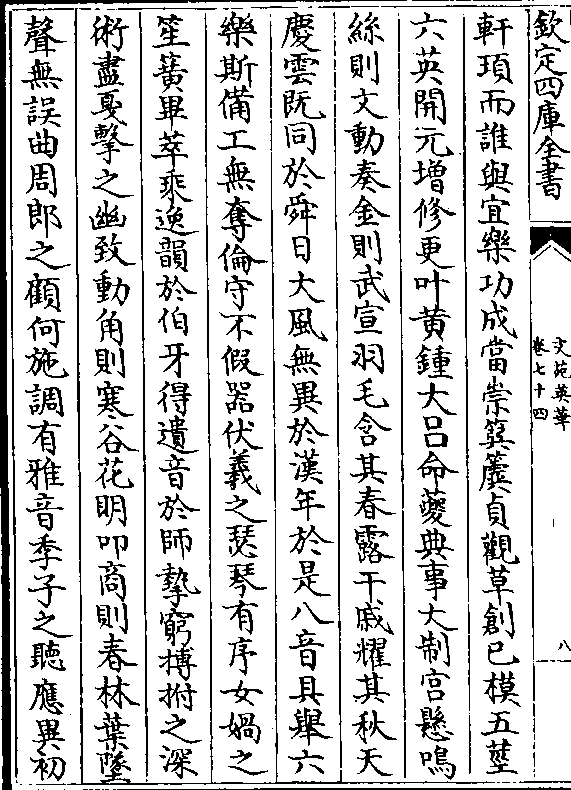 欽定四庫全書
文苑英華
卷七十四
八
軒頊而誰與宜樂功成當崇簨簴貞觀草創已模五莖
六英開元增修更叶黃鍾大呂命夔典事大制宮懸鳴
絲則文動奏金則武宣羽毛含其春露干戚耀其秋天
慶雲旣同於舜日大風無異於漢年於是八音具舉六
樂斯備工無奪倫守不假器伏羲之瑟琴有序女媧之
笙簧畢萃乘逸韻於伯牙得遺音於師摯窮搏拊之深
術盡戛擊之幽致動角則寒谷花明叩商則春林葉墜
聲無誤曲周郎之顧何施調有雅音季子之聽應異初